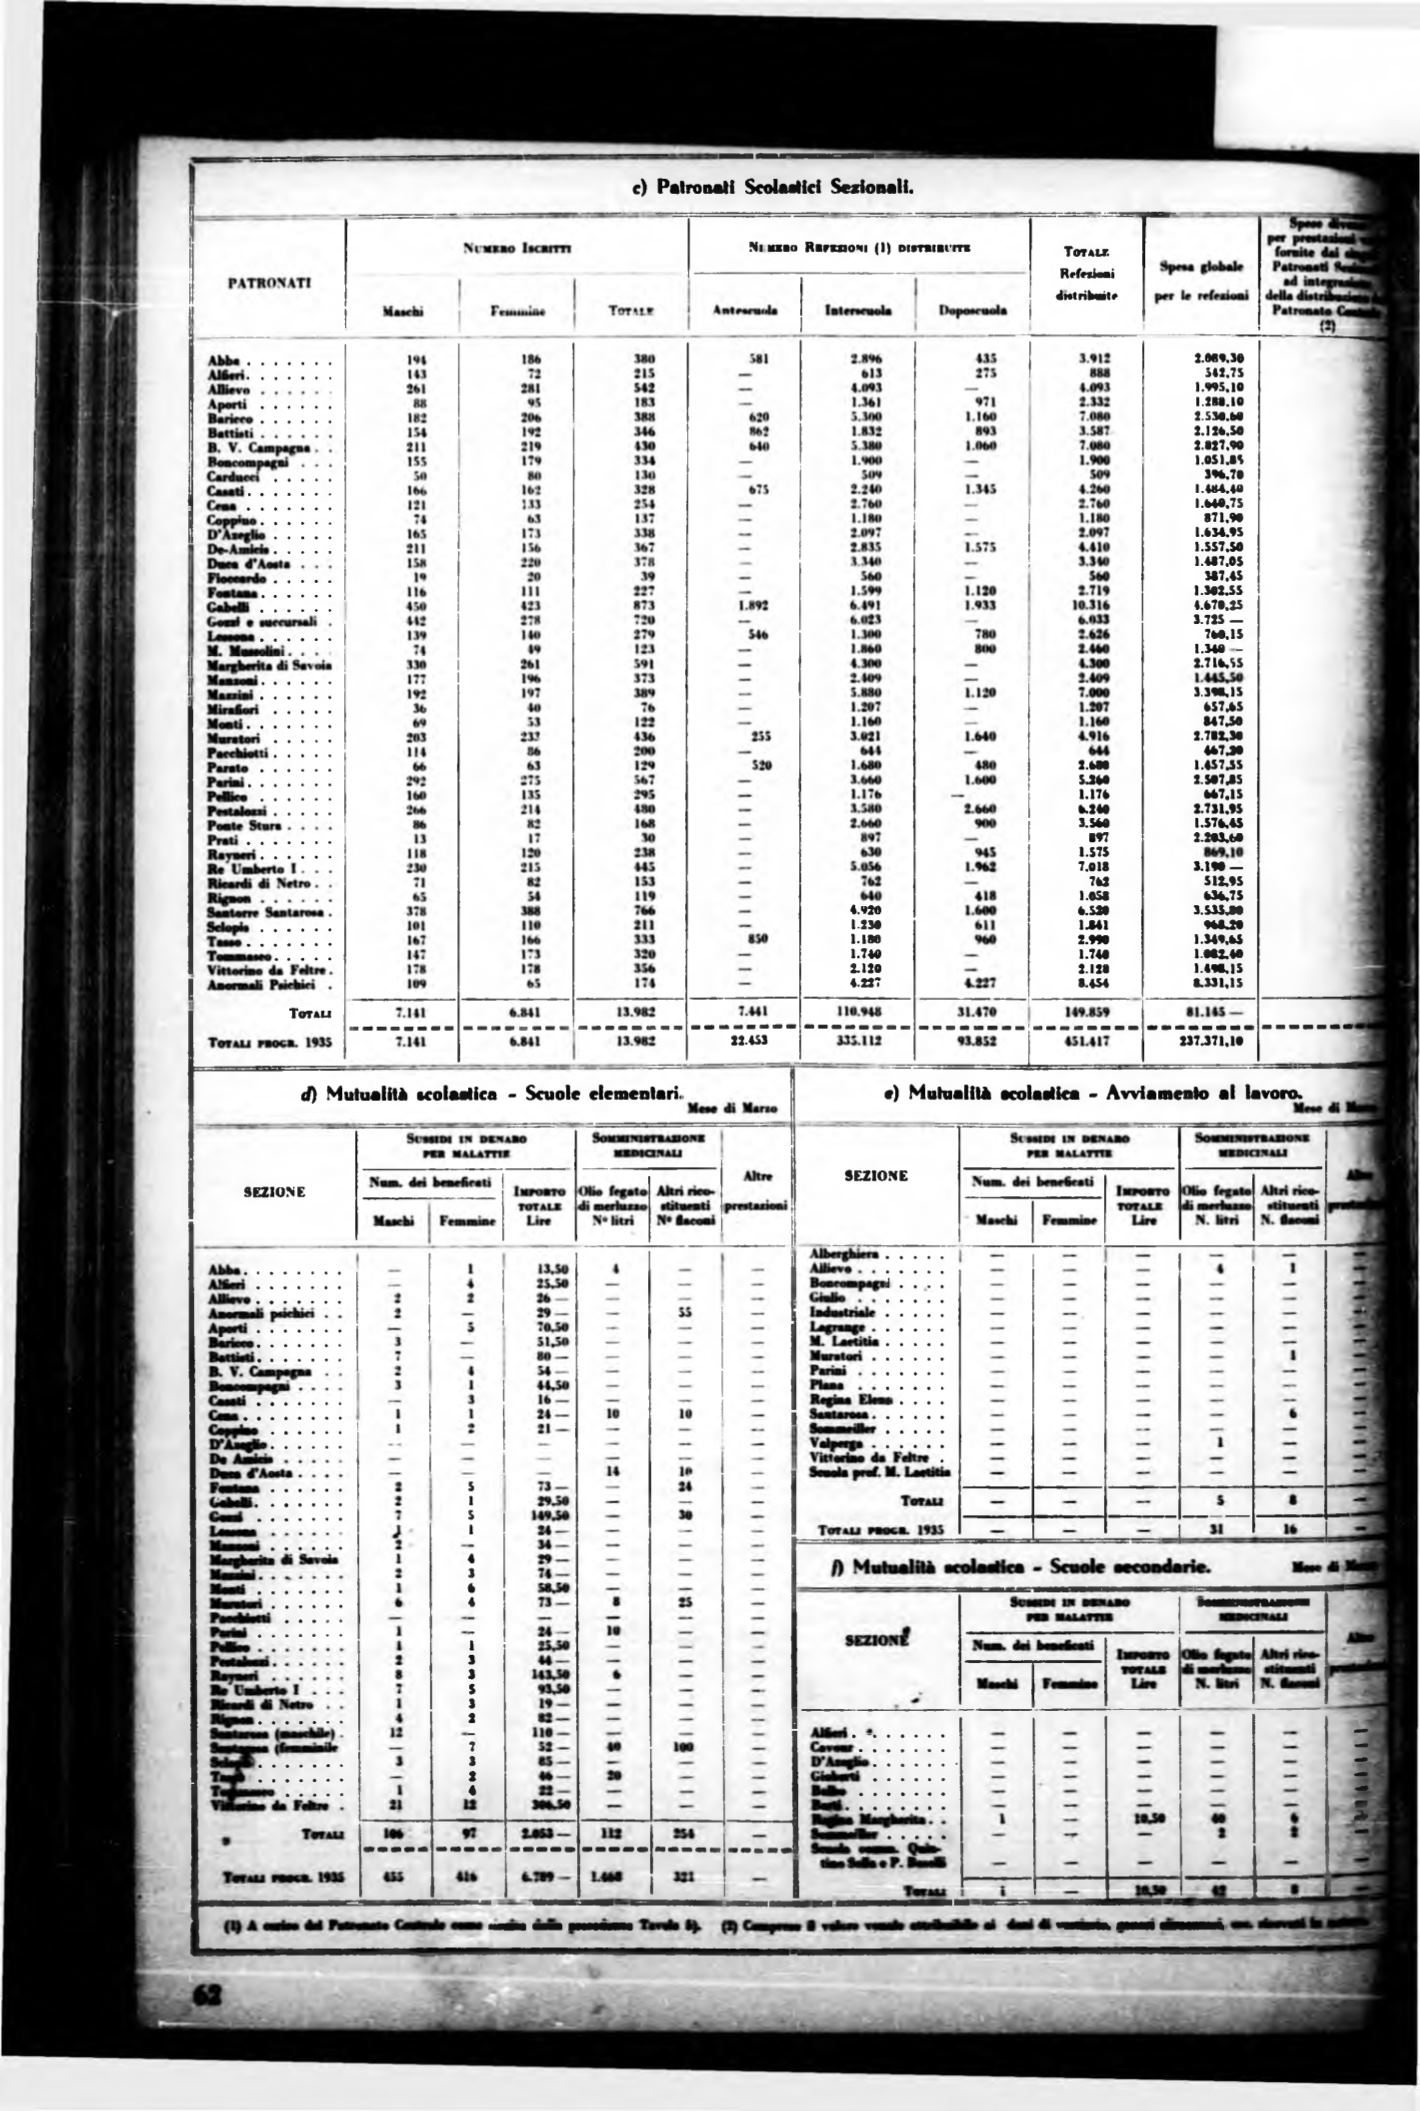 c) Patronati Scolastici Sezionali.
PATRONATI
NUMERO ISCRITTI
NUMERO REFEZIONI (1) DISTRIBUITE
TOTALE Refezioni distribuite
Spesa globale per le refezioni
per prestazioni
fornite dai
Patronati
ad
della
Patronato
(2)
Maschi Femmine TOTALE Antescuola Interscuola Doposcuola
Abba . . . . . . . 194 186 380 581 2.896 435 3.912 2.089,30
Alfieri. . . . . . . 143 72 215 — 613 275 888 542,75
Allievo . . . . . . 261 281 542 — 4.093 — 4.093 1.995,10
Aporti . . . . . . 88 95 183 — 1.361 971 2.332 1.288,10
Baricco . . . . . . 182 206 388 620 5.300 1.160 7.080 2.530,60
Battisti . . . . . . 154 192 346 862 1.832 893 3.587 2.126,50
B. V. Campagna . . 211 219 430 640 5.380 1.060 7.080 2.827,90
Boncompagni . . . 155 179 334 — 1.900 — 1.900 1.051,85
Carducci . . . . . 50 80 130 — 509 — 509 396,70
Casati. . . . . . . 166 162 328 675 2.240 1.345 4.260 1.484,40
Cena . . . . . . . 121 133 254 — 2.760 — 2.760 1.640,75
Coppino. . . . . . 74 63 137 — 1.180 — 1.180 871,90
D'Azeglio . . . . . 165 173 338 — 2.097 — 2.097 1.634,95
De-Amicis. . . . . 211 156 367 — 2.835 1.575 4.410 1.557,50
Duca d'Aosta . . . 158 220 378 — 3.340 — 3.340 1.487,05
Fioccardo . . . . . 19 20 39 — 560 — 560 387,45
Fontana. . . . . . 116 111 227 — 1.599 1.120 2.719 1.302,55
Gabelli . . . . . . 450 423 873 1.892 6.491 1.933 10.316 4.670,25
Gozzi e succursali . 442 278 720 — 6.023 — 6.033 3.725 —
Lessona . . . . . . 139 140 279 546 1.300 780 2.626 760,15
M. Mussolini. . . . 74 49 123 — 1.860 800 2.460 1.340 —
Margherita di Savoia 330 261 591 — 4.300 — 4.300 2.716,55
Manzoni. . . . . . 177 196 373 — 2.409 — 2.409 1.445,50
Mazzini . . . . . . 192 197 389 — 5.880 1.120 7.000 3.398,15
Mirafiori . . . . . 36 40 76 — 1.207 — 1.207 657,65
Monti. . . . . . . 69 53 122 — 1.160 — 1.160 847,50
Muratori . . . . . 203 233 436 255 3.021 1.640 4.916 2.782,30
Pacchiotti . . . . . 114 86 200 — 644 — 644 467,20
Parato . . . . . . 66 63 129 520 1.680 480 2.680 1.457,55
Parini. . . . . . . 292 275 567 — 3.660 1.600 5.260 2.507,85
Pellico . . . . . . 160 135 295 — 1.176 — 1.176 667,15
Pestalozzi . . . . . 266 214 480 — 3.580 2.660 6.240 2.731,95
Ponte Stura . . . . 86 82 168 — 2.660 900 3.560 1.576,45
Prati . . . . . . . 13 17 30 — 897 — 897 2.203,60
Rayneri. . . . . . 118 120 238 — 630 945 1.575 869,10
Re Umberto I . . . 230 215 445 — 5.056 1.962 7.018 3.190 —
Ricardi di Netro . . 71 82 153 — 762 — 762 512,95
Rignon . . . . . . 65 54 119 — 640 418 1.058 636,75
Santorre Santarosa . 378 388 766 — 4.920 1.600 6.520 3.535,80
Sclopis . . . . . . 101 110 211 — 1.230 611 1.841 968,20
Tasso . . . . . . . 167 166 333 850 1.180 960 2.990 1.349,65
Tommaseo. . . . . 147 173 320 — 1.740 — 1.740 1.082,40
Vittorino da Feltre . 178 178 356 — 2.120 — 2.120 1.498,15
Anormali Psichici . 109 65 174 — 4.227 4.227 8.454 8.331,15
TOTALI 7.141 6.841 13.982 7.441 110.948 31.470 149.859 81.145 —
TOTALI PROGR. 1935 7.141 6.841 13.982 22.453 335.112 93.852 451.417 237.371,10
d) Mutualità scolastica – Scuole elementari.
Mese di Marzo
SEZIONE
SUSSIDI IN DENARO PER MALATTIE
SOMMINISTRAZIONE MEDICINALI
Altre prestazioni
Num. dei beneficati
Maschi Femmine
IMPORTO TOTALE Lire
Olio fegato di merluzzo N° litri
Altri ricostituenti N° flaconi
Abba. . . . . . . . — 1 13,50 4 — —
Alfieri . . . . . . . — 4 25,50 — — —
Allievo . . . . . . . 2 2 26 — — — —
Anormali psichici . . 2 — 29 — — 55 —
Aporti . . . . . . . — 5 70,50 — — —
Baricco. . . . . . . 3 — 51,50 — — —
Battisti. . . . . . . 7 — 80 — — — —
B. V. Campagna . . 2 4 54 — — — —
Boncompagni . . . . 3 1 44,50 — — —
Casati . . . . . . . — 3 16 — — — —
Cena. . . . . . . . 1 1 24 — 10 10 —
Coppino . . . . . . 1 2 21 — — — —
D'Azeglio. . . . . . — — — — — —
De Amicis . . . . . — — — — — —
Duca d'Aosta . . . . — — — 14 10 —
Fontana . . . . . . 2 5 73 — — 24 —
Gabelli. . . . . . . 2 1 29,50 — — —
Gozzi . . . . . . . 7 5 149,50 — 30 —
Lessona . . . . . . 1 1 24 — — — —
Manzoni . . . . . . 2 — 34 — — — —
Margherita di Savoia 1 4 29 — — — —
Mazzini. . . . . . . 2 3 74 — — — —
Monti . . . . . . . 1 6 58,50 — — —
Muratori . . . . . . 6 4 73 — 8 25 —
Pacchiotti . . . . . — — — — — —
Parini . . . . . . . 1 — 24 — 10 — —
Pellico . . . . . . . 1 1 25,50 — — —
Pestalozzi. . . . . . 2 3 44 — — — —
Rayneri . . . . . . 8 3 143,50 6 — —
Re Umberto I . . . 7 5 93,50 — — —
Ricardi di Netro . . 1 3 19 — — — —
Rignon. . . . . . . 4 2 82 — — — —
Santarosa (maschile) . 12 — 110 — — — —
Santarosa (femminile — 7 52 — 40 100 —
3 3 85 — — — —
— 2 46 — 20 — —
Tommaseo . . . . . 1 4 22 — — — —
Vittorino da Feltre . 21 12 306,50 — — —
TOTALI 106 97 2.053 — 112 254 —
TOTALI PROGR. 1935 455 416 6.789 — 1.468 321 —
e) Mutualità scolastica – Avviamento al lavoro.
Mese di
SEZIONE
SUSSIDI IN DENARO PER MALATTIE
SOMMINISTRAZIONE MEDICINALI
Num. dei beneficati
Maschi Femmine
IMPORTO TOTALE Lire
Olio fegato di merluzzo N. litri
Altri ricostituenti N. flaconi
Alberghiera . . . . . — — — — — —
Allievo . . . . . . . — — — 4 1 —
Boncompagni . . . . — — — — — —
Giulio . . . . . . . — — — — — —
Industriale . . . . . — — — — — —
Lagrange . . . . . . — — — — — —
M. Laetitia . . . . . — — — — — —
Muratori . . . . . . — — — — 1 —
Parini . . . . . . . — — — — — —
Plana . . . . . . . — — — — — —
Regina Elena . . . . — — — — — —
Santarosa. . . . . . — — — — 6 —
Sommeiller . . . . . — — — — — —
Valperga . . . . . . — — — 1 — —
Vittorino da Feltre . — — — — — —
Scuola prof. M. Laetitia — — — — — —
TOTALI — — — 5 8 —
TOTALI PROGR. 1935 — — — 31 16 —
f) Mutualità scolastica – Scuole secondarie.
Mese di
SEZIONE
SUSSIDI IN DENARO PER MALATTIE
SOMMINISTRAZIONE MEDICINALI
Num. dei beneficati
Maschi Femmine
IMPORTO TOTALE Lire
Olio fegato di merluzzo N. litri
Altri ricostituenti N. flaconi
Alfieri . . . . . . . — — — — — —
Cavour . . . . . . . — — — — — —
D'Azeglio. . . . . . — — — — — —
Gioberti . . . . . . — — — — — —
Balbo . . . . . . . — — — — — —
Berti. . . . . . . . — — — — — —
Regina Margherita. . 1 — 10,50 40 6 —
Sommeiller . . . . . — — — 2 2 —
Scuola comm. Quintino Sella e P. Boselli — — — — — —
TOTALI 1 — 10,50 42 8 —
(1) A carico del Patronato Centrale come risulta dalla precedente Tavola b). (2) Compreso il valore venale attribuibile ai doni di vestiario, generi alimentari, ecc.
62